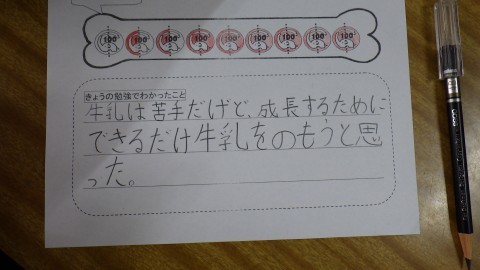 100 100 100 100 100 100 100 100 100
きょうの勉強でわかったこと
牛乳は苦手だけど、成長するために
できるだけ牛乳をのもうと思
った。